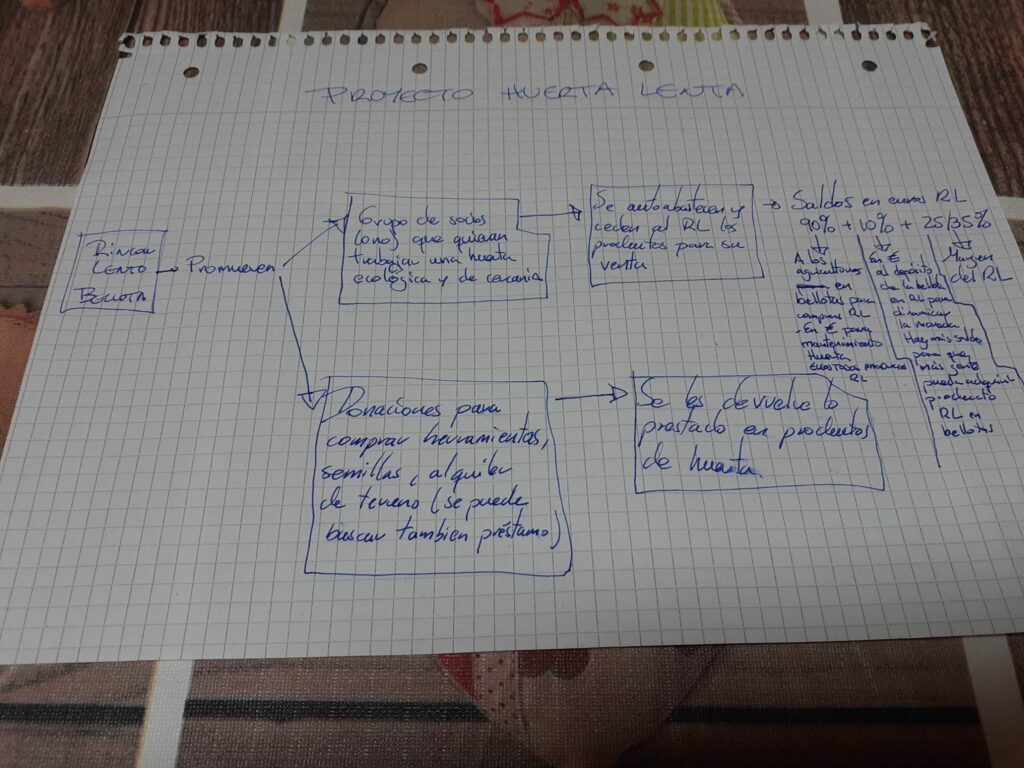 PROYECTO HUERTA LENTA
RINCON
LENTO
BELLOTA
Promueven
Grupo de socios
(o no) que quieran
trabajar una huerta
ecológica y de cercania
Se autoabastecen y
ceden al RL los
productos para su
venta
Saldos en euros RL
90% + 10% + 25/35%
A los
agricultores
en
bellotas para
comprar RL
- En € para
mantenimiento
Huerta
RL
En €
al depósito
de la bellota
en RL para
dinamizar
la moneda
Hay más saldo
para que
más gente
pueda adquirir
producto
RL en
bellotas
Margen
del RL
Donaciones para
comprar herramientas,
semillas, alquiler
de terreno (se puede
buscar tambien préstamo)
Se les devuelve lo
prestado en productos
de huerta